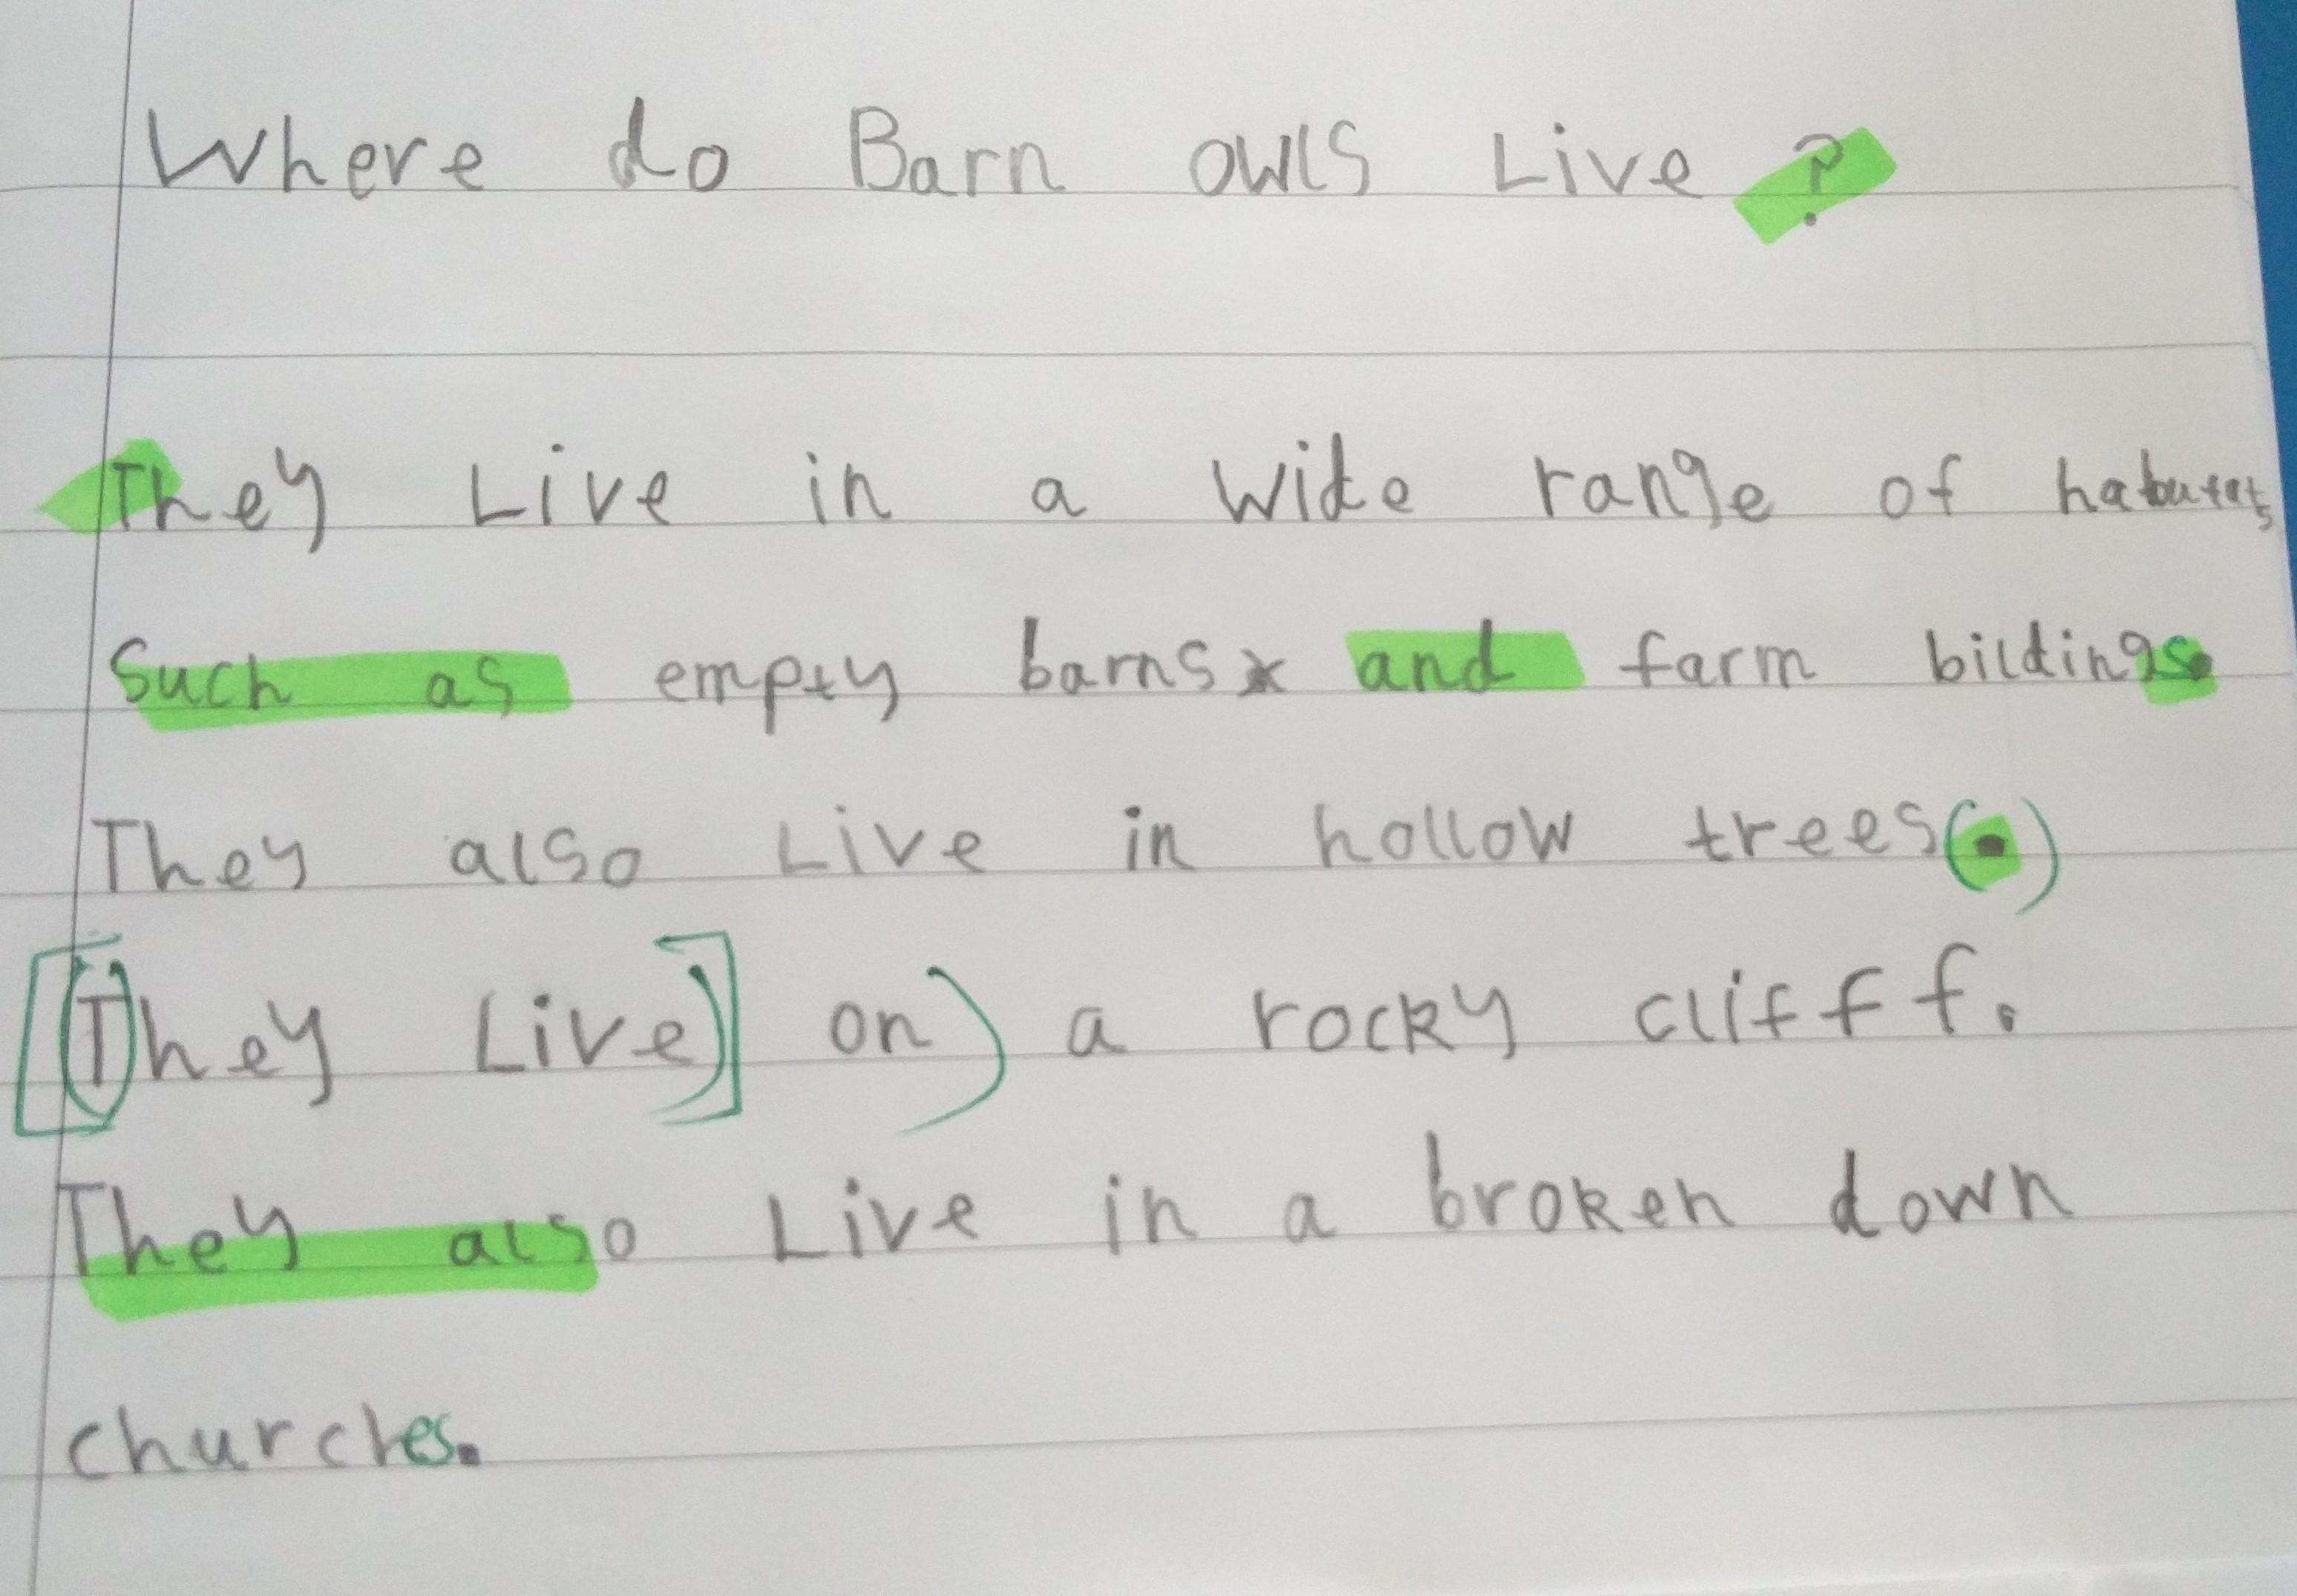 Where do Barn owls Live ?
They Live in a wide range of habutats
Such as empty barns and farm bildings.
They also Live in hollow trees(.)
[(T)hey Live)] on) a rocky cliff.
They also Live in a broken down
churches.